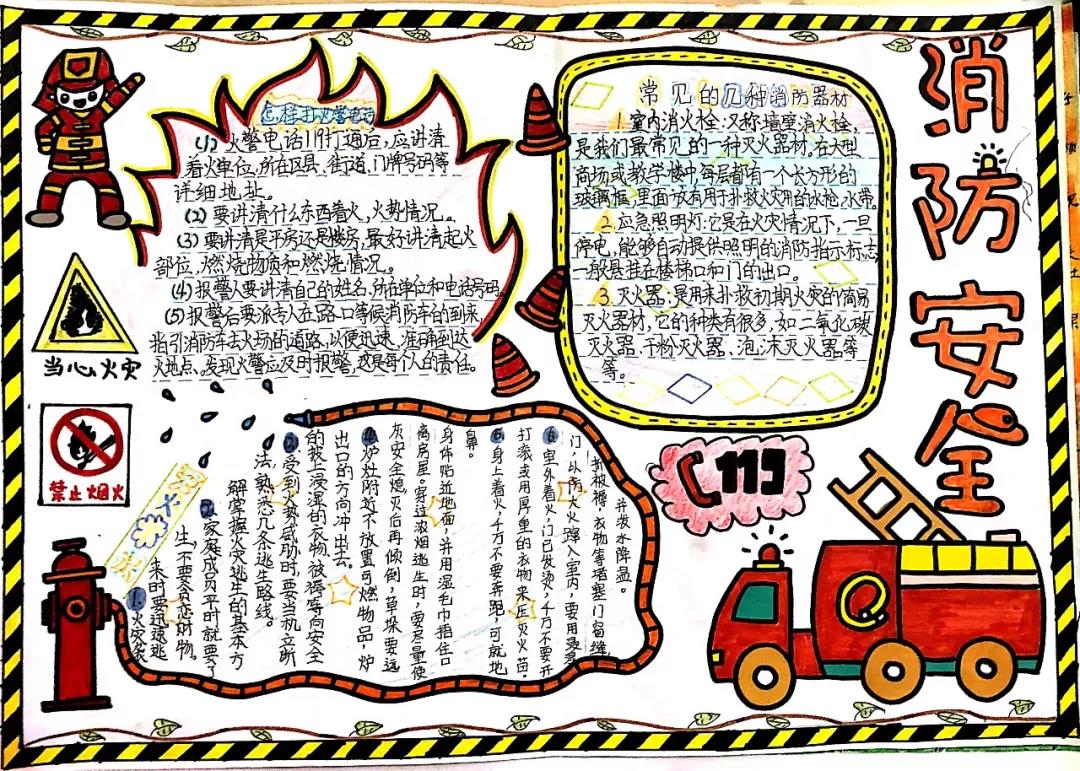 消防安全
怎样打火警电话
(1)火警电话119打通后,应讲清
着火单位,所在区县、街道、门牌号码等
详细地址。
(2)要讲清什么东西着火,火势情况。
(3)要讲清是平房还是楼房,最好讲清起火
部位,燃烧物质和燃烧情况。
(4)报警人要讲清自己的姓名,所在单位和电话号码。
(5)报警后要派专人在路口等候消防车的到来,
指引消防车去火场的道路,以便迅速、准确到达
火地点、发现火警应及时报警,这是每个人的责任。
常见的几种消防器材
1.室内消火栓:又称墙壁消火栓,
是我们最常见的一种灭火器材。在大型
商场或教学楼中,每层都有一个长方形的
玻璃框,里面放有用于扑救火灾用的水枪,水带。
2.应急照明灯:它是在火灾情况下,一旦
停电,能够自动提供照明的消防指示标志,
一般悬挂在楼梯口和门的出口。
3.灭火器:是用来扑救初期火灾的简易
灭火器材,它的种类有很多,如二氧化碳
灭火器、干粉灭火器、泡沫灭火器等
等。
当心火灾
禁止烟火
119
1.火灾袭
来时要迅速逃
生,不要贪恋财物。
2.家庭成员平时就要了
解掌握火灾逃生的基本方
法,熟悉几条逃生路线。
3.受到火势威胁时,要当机立断
的披上浸湿的衣物、被褥等向安全
出口的方向冲出去。
4.炉灶附近不放置可燃物品,炉
灰安全熄灭后再倾倒,草垛要远
离房屋。穿过浓烟逃生时,要尽量使
身体贴近地面,并用湿毛巾捂住口
鼻。
5.身上着火,千万不要奔跑,可就地
打滚或用厚重的衣物来压灭火苗。
6.室外着火,门已发烫,千万不要开
门,以防大火蹿入室内,要用浸湿
的被褥、衣物等堵塞门窗缝
并泼水降温。